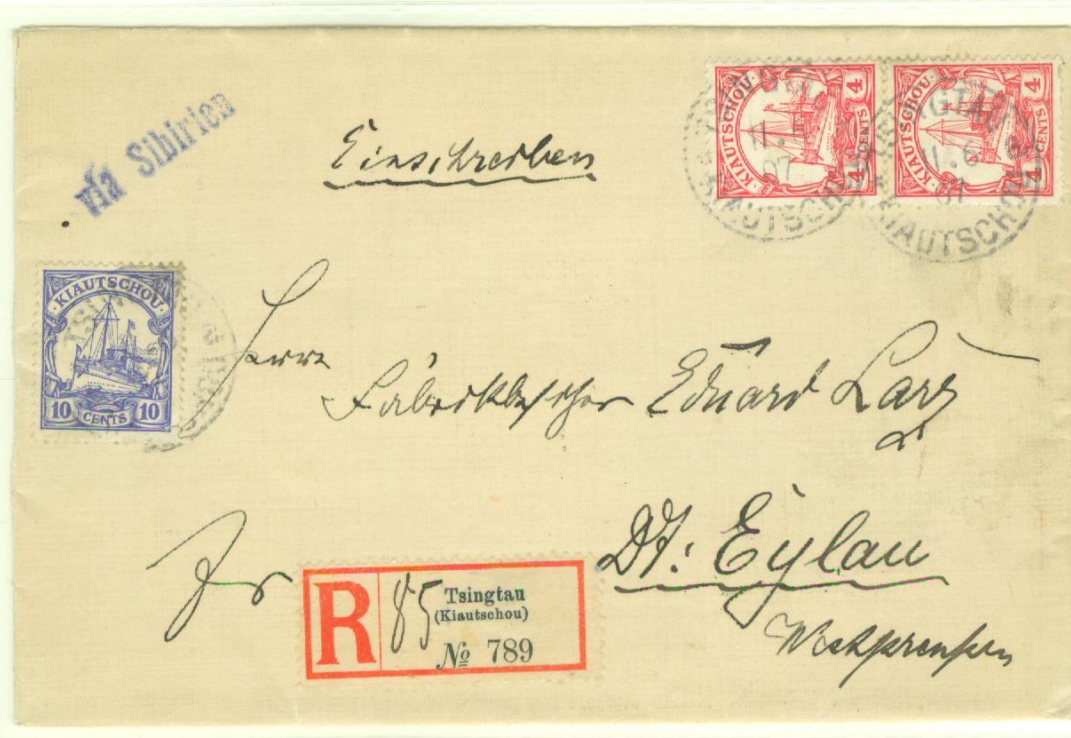 via Sibirien
Einschreiben
KIAUTSCHOU
4 CENTS 4
KIAUTSCHOU
4 CENTS 4
TSINGTAU
11.6
07
KIAUTSCHOU
TSINGTAU
11.6
07
KIAUTSCHOU
KIAUTSCHOU
10 CENTS 10
Herrn
Fabrikbesitzer Eduard
Dt. Eylau
Westpreußen
R
85
Tsingtau
(Kiautschou)
№ 789